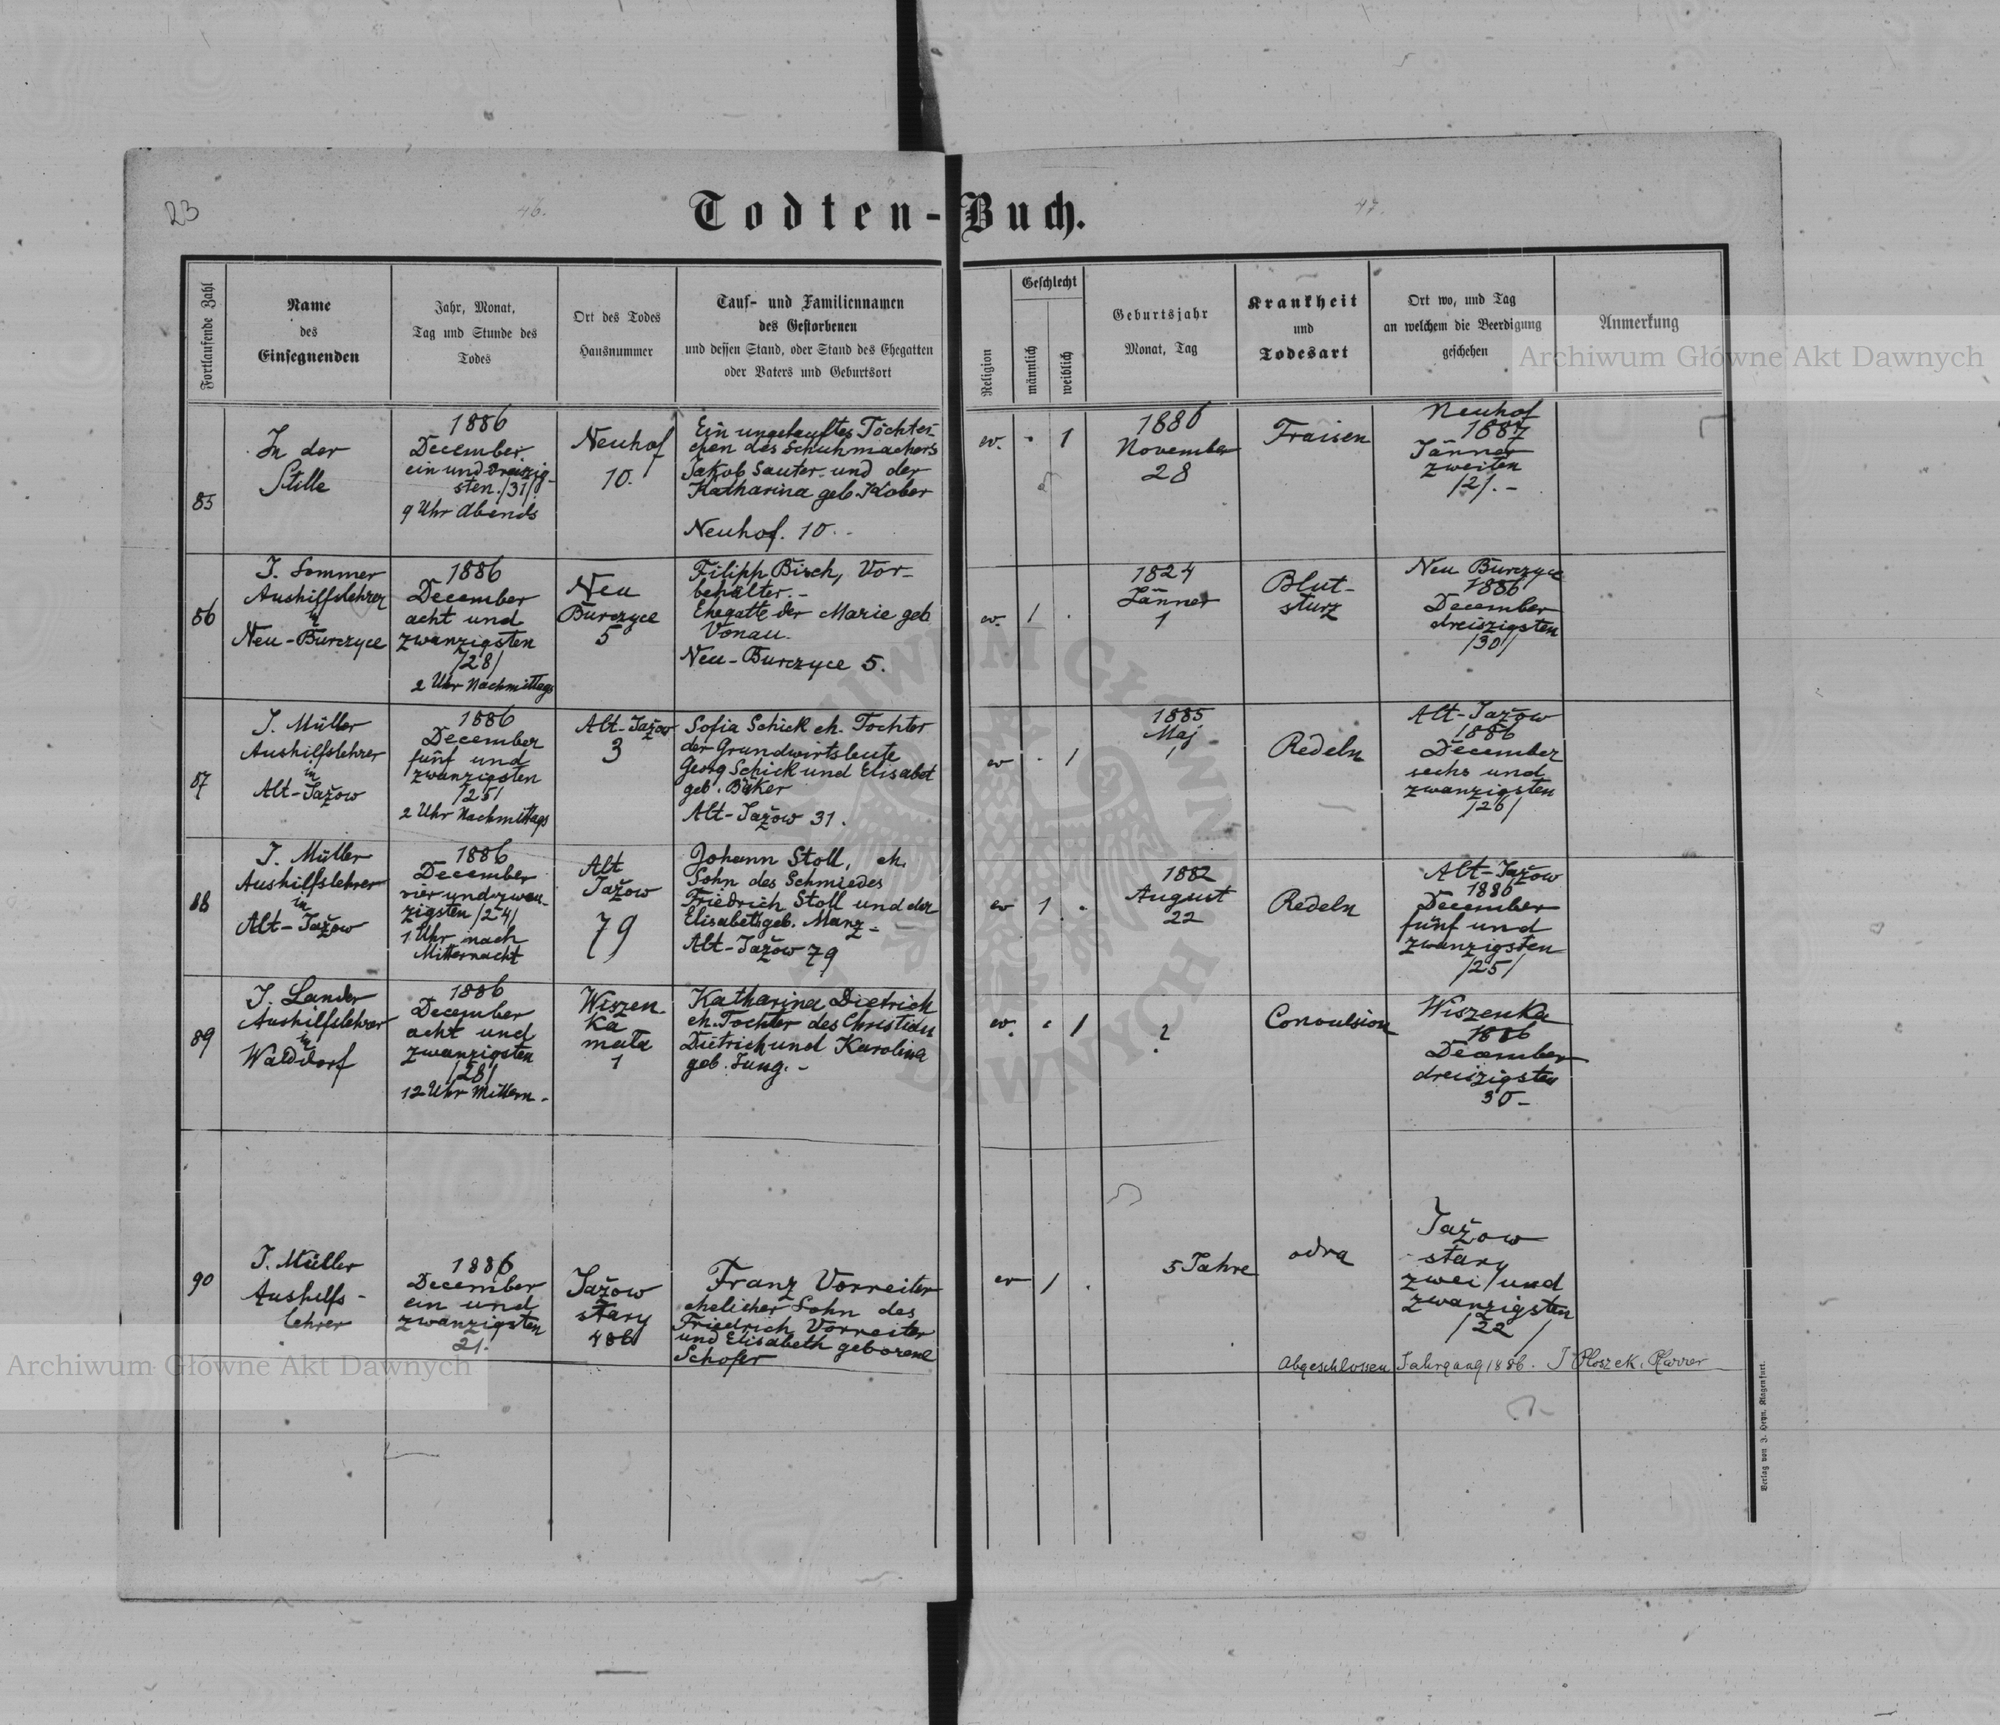 23
46.
47.
Todten-Buch.
Fortlaufende Zahl
Name
des
Einsegnenden
Jahr, Monat,
Tag und Stunde des
Todes
Ort des Todes
Hausnummer
Tauf- und Familiennamen
des Gestorbenen
und dessen Stand, oder Stand des Ehegatten
oder Vaters und Geburtsort
Religion
Geschlecht
männlich
weiblich
Geburtsjahr
Monat, Tag
Krankheit
und
Todesart
Ort wo, und Tag
an welchem die Beerdigung
geschehen
Anmerkung
Archiwum Główne Akt Dawnych
85
In der
Stille
1886
December
ein und dreizig-
sten /31/
9 Uhr Abends
Neuhof
10.
Ein ungetauftes Töchter-
chen des Schuhmachers
Jakob Sauter und der
Katharina geb. Kober
Neuhof. 10.
ev.
1
1886
November
28
Fraisen
Neuhof
1887
Jänner
zweiten
/2/. -
86
J. Sommer
Aushilfslehrer
in
Neu-Burczyce
1886
December
acht und
zwanzigsten
/28/
2 Uhr Nachmittags
Neu
Burczyce
5
Filipp Bisch, Vor-
behälter. -
Ehegatte der Marie geb
Vonau.
Neu-Burczyce 5.
ev.
1
1824
Jänner
1
Blut-
sturz
Neu Burczyce
1886
December
dreiszigsten
/30/
87
J. Müller
Aushilfslehrer
in
Alt-Jažow
1886
December
fünf und
zwanzigsten
/25/
2 Uhr Nachmittags
Alt-Jažow
3
Sofia Schick eh. Tochter
der Grundwirtsleute
Georg Schick und Elisabet
geb. Bäker
Alt-Jažow 31.
ev
1
1885
Maj
1
Redeln
Alt-Jažow
1886
December
sechs und
zwanzigsten
/26/
88
J. Müller
Aushilfslehrer
in
Alt-Jažow
1886
December
vier und zwan-
zigsten /24/
1 Uhr nach
Mitternacht
Alt
Jažow
79
Johann Stoll, eh.
Sohn des Schmiedes
Friedrich Stoll und der
Elisabeth geb. Manz -
Alt-Jažow 79
ev
1
1882
August
22
Redeln
Alt-Jažow
1886
December
fünf und
zwanzigsten
/25/
89
J. Lander
Aushilfslehrer
in
Walddorf
1886
December
acht und
zwanzigsten
/28/
12 Uhr Mittern.
Wiszen
ka
mała
1
Katharina Dietrich
eh. Tochter des Christian
Dietrich und Karolina
geb. Jung. -
ev.
1
?
Convulsion
Wiszenka
1886
December
dreiszigsten
30 -
90
J. Müller
Aushilfs-
lehrer
1886
December
ein und
zwanzigsten
21.
Jažow
stary
Franz Vorreiter
ehelicher Sohn des
Friedrich Vorreiter
und Elisabeth geborene
Schofer
ev
1
5 Jahre
odra
Jažow
stary
zwei und
zwanzigsten
/22/
Abgeschlossen Jahrgang 1886. J Ploszek, Pfarrer
Archiwum Główne Akt Dawnych
Verlag von J. Heyn, Klagenfurt.